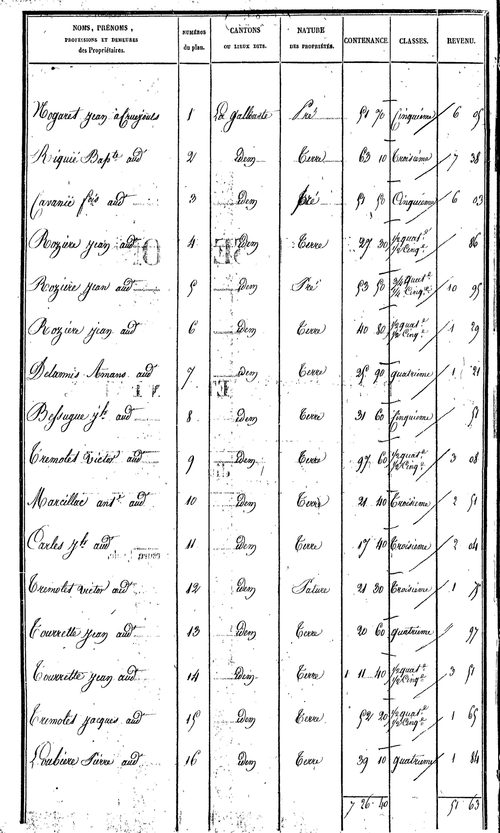 NOMS, PRÉNOMS, PROFESSIONS ET DEMEURES des Propriétaires. NUMÉROS du plan. CANTONS OU LIEUX DITS. NATURE DES PROPRIÉTÉS. CONTENANCE. CLASSES. REVENU.
Nogaret jean à Cruejouls 1 La galbaste Pré 51 70 Cinquieme 6 05
Riguié Bapte aud 2 idem Terre 63 10 Troisième 7 38
Cavanié fois aud 3 idem Pré 51 50 Cinquieme 6 03
Rozière jean aud 4 idem Terre 27 30 1/2 quat.e 1/2 Cinq.e 86
Rozière jean aud 5 idem Pré 53 50 3/4 quat.e 1/4 Cinq.e 10 95
Rozière jean aud 6 idem Terre 40 80 1/2 quat.e 1/2 Cinq.e 1 29
Delannis Amans aud 7 idem Terre 25 90 quatrieme 1 21
Bessugue jh aud 8 idem Terre 31 60 Cinquieme 51
Tremolet victor aud 9 idem Terre 97 60 1/2 quat.e 1/2 Cinq.e 3 08
Marcillac ant.e aud 10 idem Terre 21 40 Troisieme 2 51
Carles jh aud 11 idem Terre 17 40 Troisieme 2 04
Tremolet victor aud 12 idem Pature 21 30 Troisieme 1
Tourrette jean aud 13 idem Terre 20 60 quatrieme " 97
Tourrette jean aud 14 idem Terre 1 11 40 1/2 quat.e 1/2 Cinq.e 3 51
Tremolet jacques aud 15 idem Terre 52 20 1/2 quat.e 1/2 Cinq.e 1 65
Loubière Pierre aud 16 idem Terre 39 10 quatrieme 1 84
7 26 40 51 63